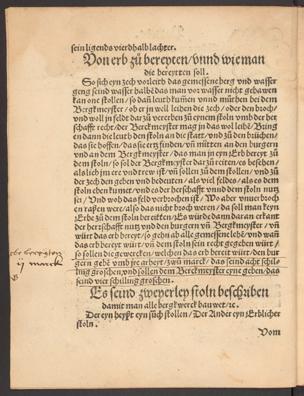 sein ligends vierdhalb lachter.
Von erb zů bereyten / vnnd wie man
die bereytten soll.
So sich eyn zech vorleith das gemessene berg vnd wasser
geng seind wasser halbē das man vor wasser nicht gehawen
kan one stollen / so dañ leuth kumen vnnd můthen bei dem
Bergkmeyster / ob er jn wil leihen die zech / oder den broch /
vnd woll jn feldt dar zů vererbē zů eynem stoln vmb der her
schafft recht / der Berckmeyster mag in das wol lehē / Bring
en dann die leuth den stoln an die statt / vnd zů den brüchen /
das sie hoffen / das sie ertz finden / vñ můtten an den burgern
vnd an dem Bergkmeyster / das man jn eyn Erb bereyt zů
dem stoln / so sol der Bergkmeyster dar zů reiten vn besehen /
als lieb jm ere vnd trew ist / vñ sollen zů dem stollen / vnd zů
der zech den geben vnd beuten / als viel feldes / als es dem
stoln eben kumet / vnd es der herschafft vnnd dem stoln nutz
sei / Vnd woh das feld verboden ist / Wo aber vnuerbroch
en raseen were / also das nicht broch weren / da soll man keyn
Erbe zů dem stoln bereitten / Es würde dann daran erkant
der herschafft nutz vnd den burgern vñ Bergkmeyster / vñ
würt das erb bereyt / so gehn ab alle gemessene lehē / vnd wañ
das erb bereyt würt / vñ dem stoln sein recht gegeben würt /
so sollen die gewercken / welchen das erb bereit würt / den bur
gern gebē vmb jre arbeyt / zwů marck / das seind acht schil-
ling groschen / vnd sollen dem Berckmeyster eyne geben / das
seind vier schilling groschen.
ij marck
Es seind zweyerley stoln beschriben
damit man alle bergkwerck bauwet / ec.
Der eyn heyßt eyn sůch stollen / Der Ander eyn Erblicher
stoln.
Vom